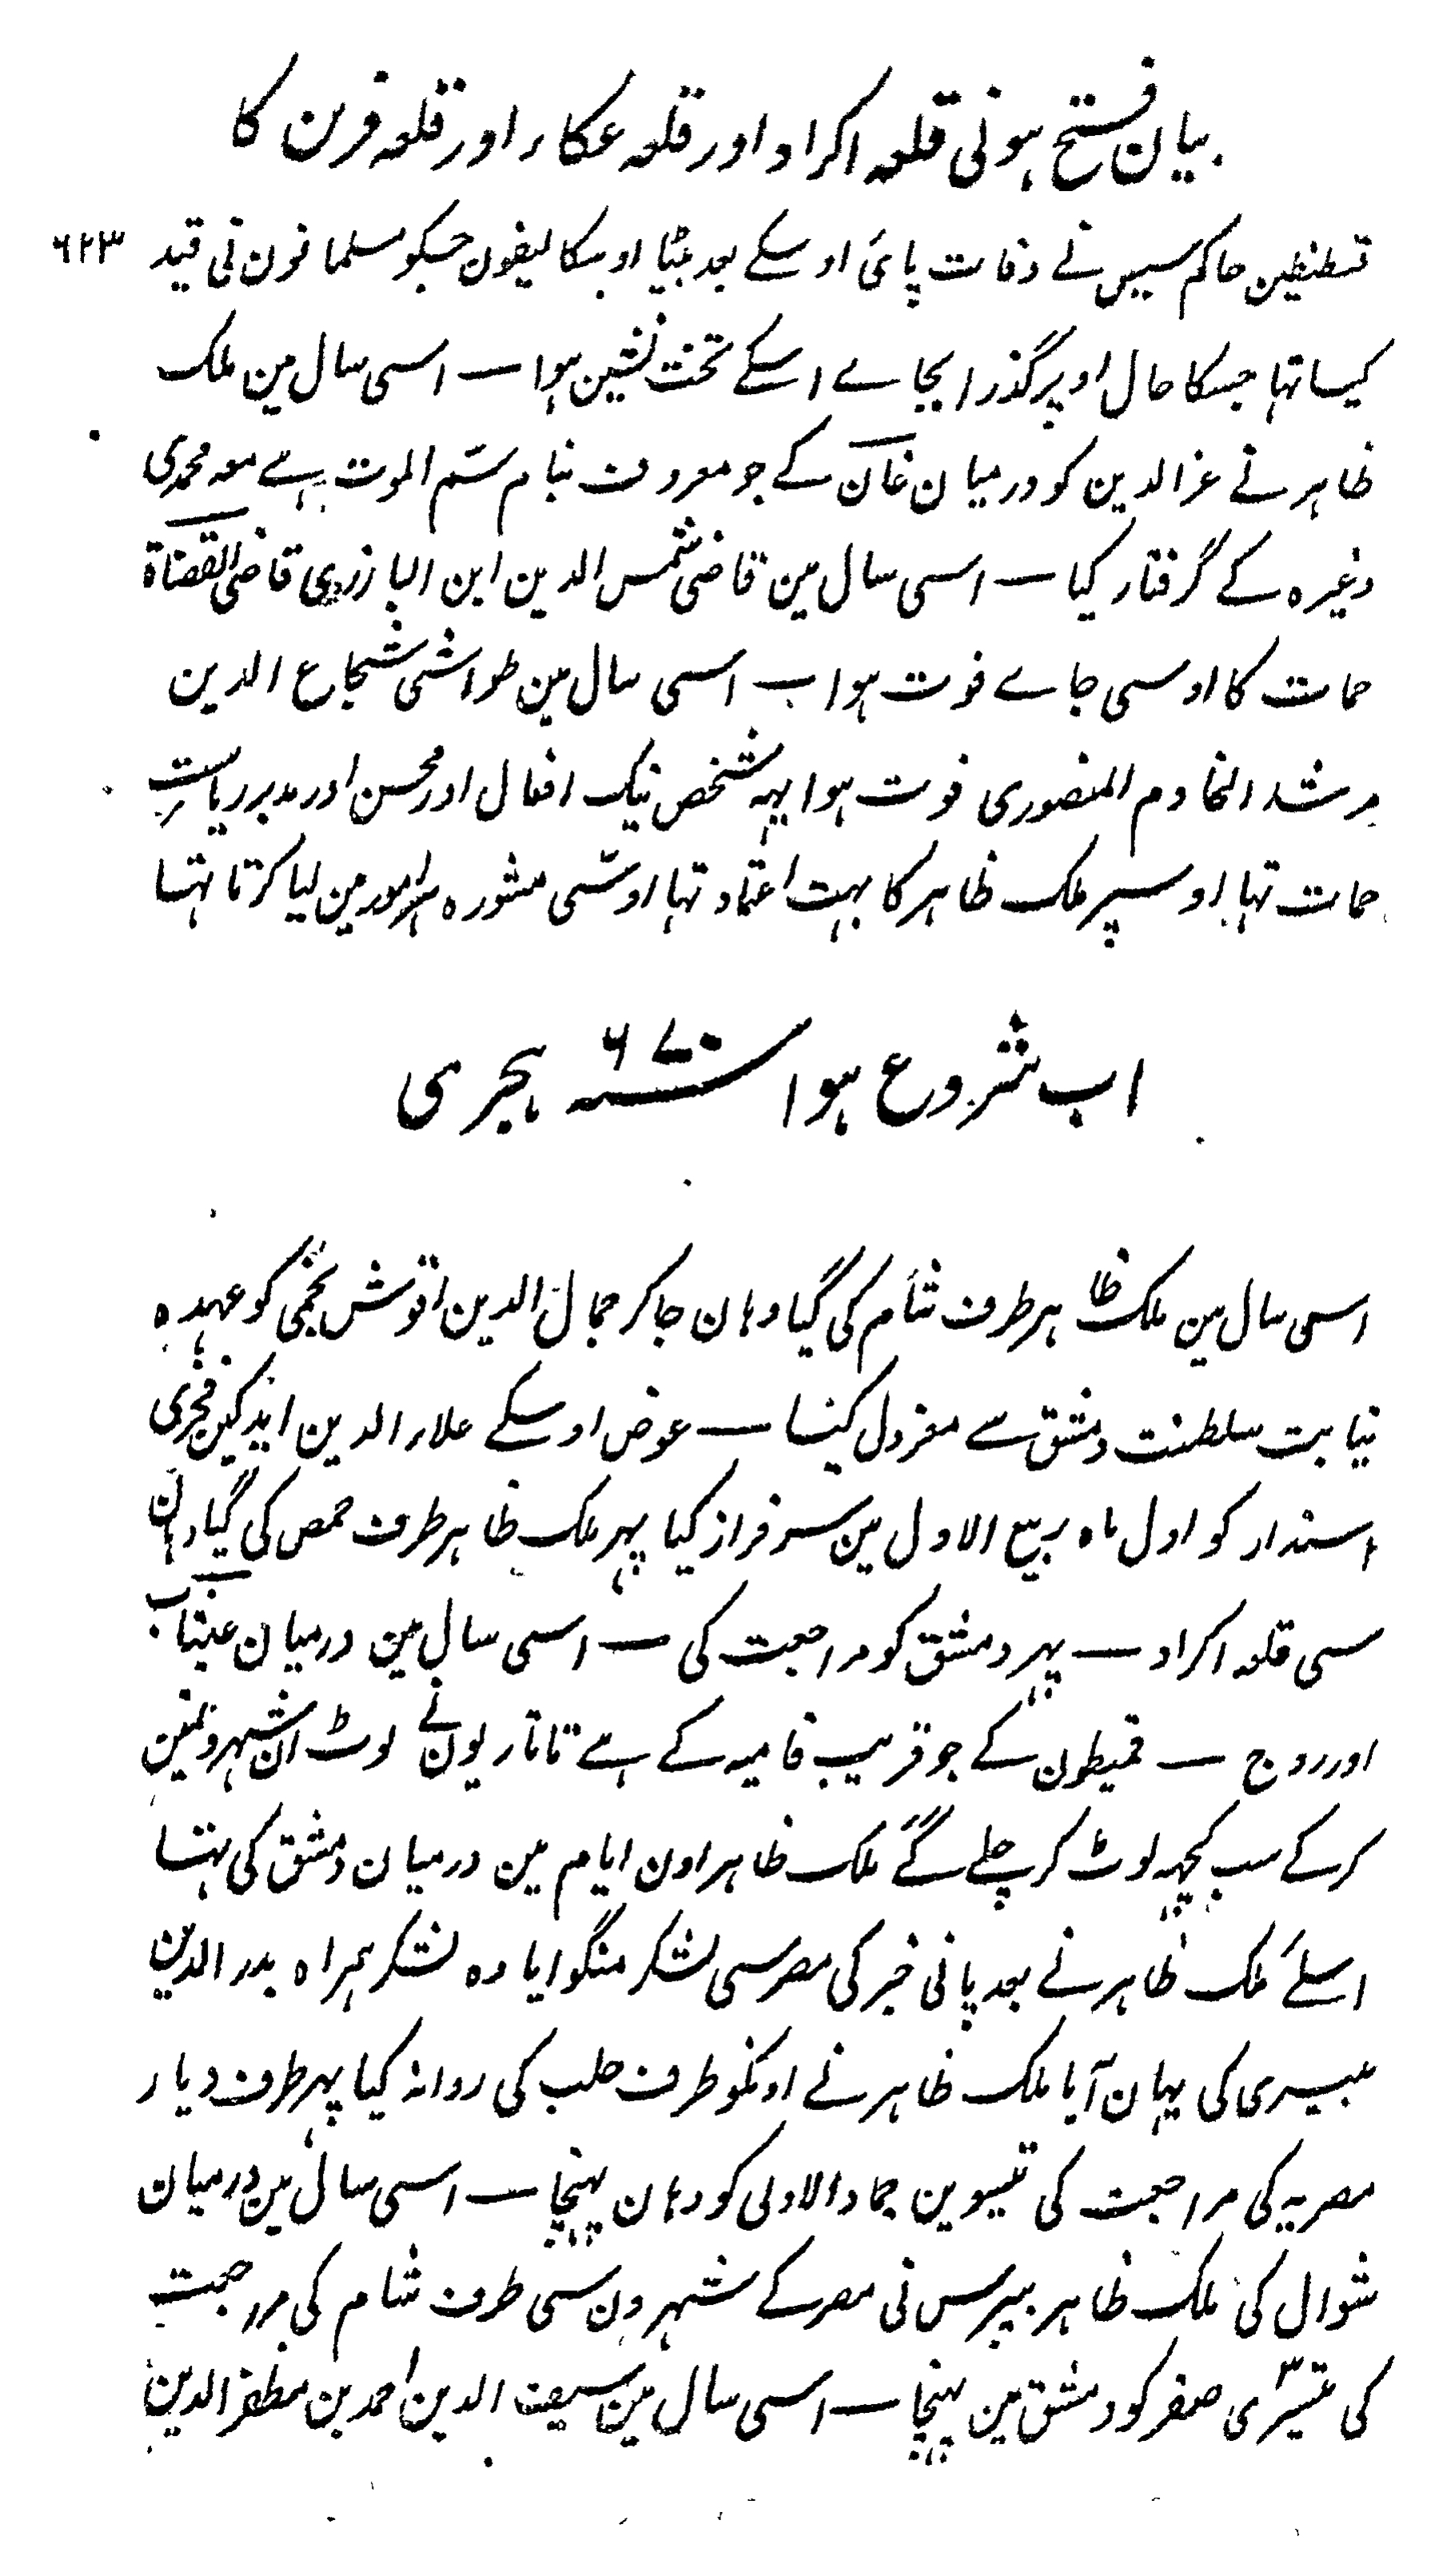 بیان فتح ہونی قلعہ اکراد اور قلعہ عکاء اور قلعہ قرن کا
۶۲۳
قسطنطین حاکم سیس نے وفات پائی اوسکے بعد بیٹا اوسکا لیفون جسکو مسلمانون نی قید
کیا تہا جسکا حال اوپر گذرا بجاے اسکے تخت نشین ہوا — اسی سال مین ملک
ظاہر نے عزالدین کو درمیان غان کے جو معروف بنام سم الموت ہے معہ محمدی
وغیرہ کے گرفتار کیا — اسی سال مین قاضی شمس الدین ابن البازری قاضی القضاۃ
حمات کا اوسی جاے فوت ہوا — اسی سال مین طواشی شجاع الدین
مرشد الخادم المنصوری فوت ہوا یہہ شخص نیک افعال اور محسن اور مدبر ریاست
حمات تہا اوسپر ملک ظاہر کا بہت اعتماد تہا اوسی مشورہ ہر امور مین لیا کرتا تہا
اب شروع ہوا سنہ ۶۷۰ ہجری
اسی سال مین ملک ظاہر طرف شام کی گیا وہان جا کر جمال الدین اقوش نجمی کو عہدہ
نیابت سلطنت دمشق سے معزول کیا — عوض اوسکے علاء الدین ایدکین فخری
استدار کو اول ماہ ربیع الاول مین سرفراز کیا پہر ملک ظاہر طرف حمص کی گیا وہان
سی قلعہ اکراد — پہر دمشق کو مراجعت کی — اسی سال مین درمیان عینتاب
اور روج — قمیطون کے جو قریب فامیہ کے ہے تاتاریون نے لوٹ ان شہرونمین
کرکے سب کچہہ لوٹ کر چلے گے ملک ظاہر اون ایام مین درمیان دمشق کی تہا
اسلئے ملک ظاہر نے بعد پانی خبر کی مصر سی لشکر منگوایا وہ لشکر ہمراہ بدر الدین
بیسری کی یہان آیا ملک ظاہر نے اونکو طرف حلب کی روانہ کیا پہر طرف دیار
مصریہ کی مراجعت کی تیئسوین جماد الاولی کو وہان پہنچا — اسی سال مین درمیان
شوال کی ملک ظاہر بیبرس نی مصر کے شہرون سی طرف شام کی مراجعت
کی تیسری صفر کو دمشق مین پہنچا — اسی سال مین سیف الدین احمد بن مظفر الدین